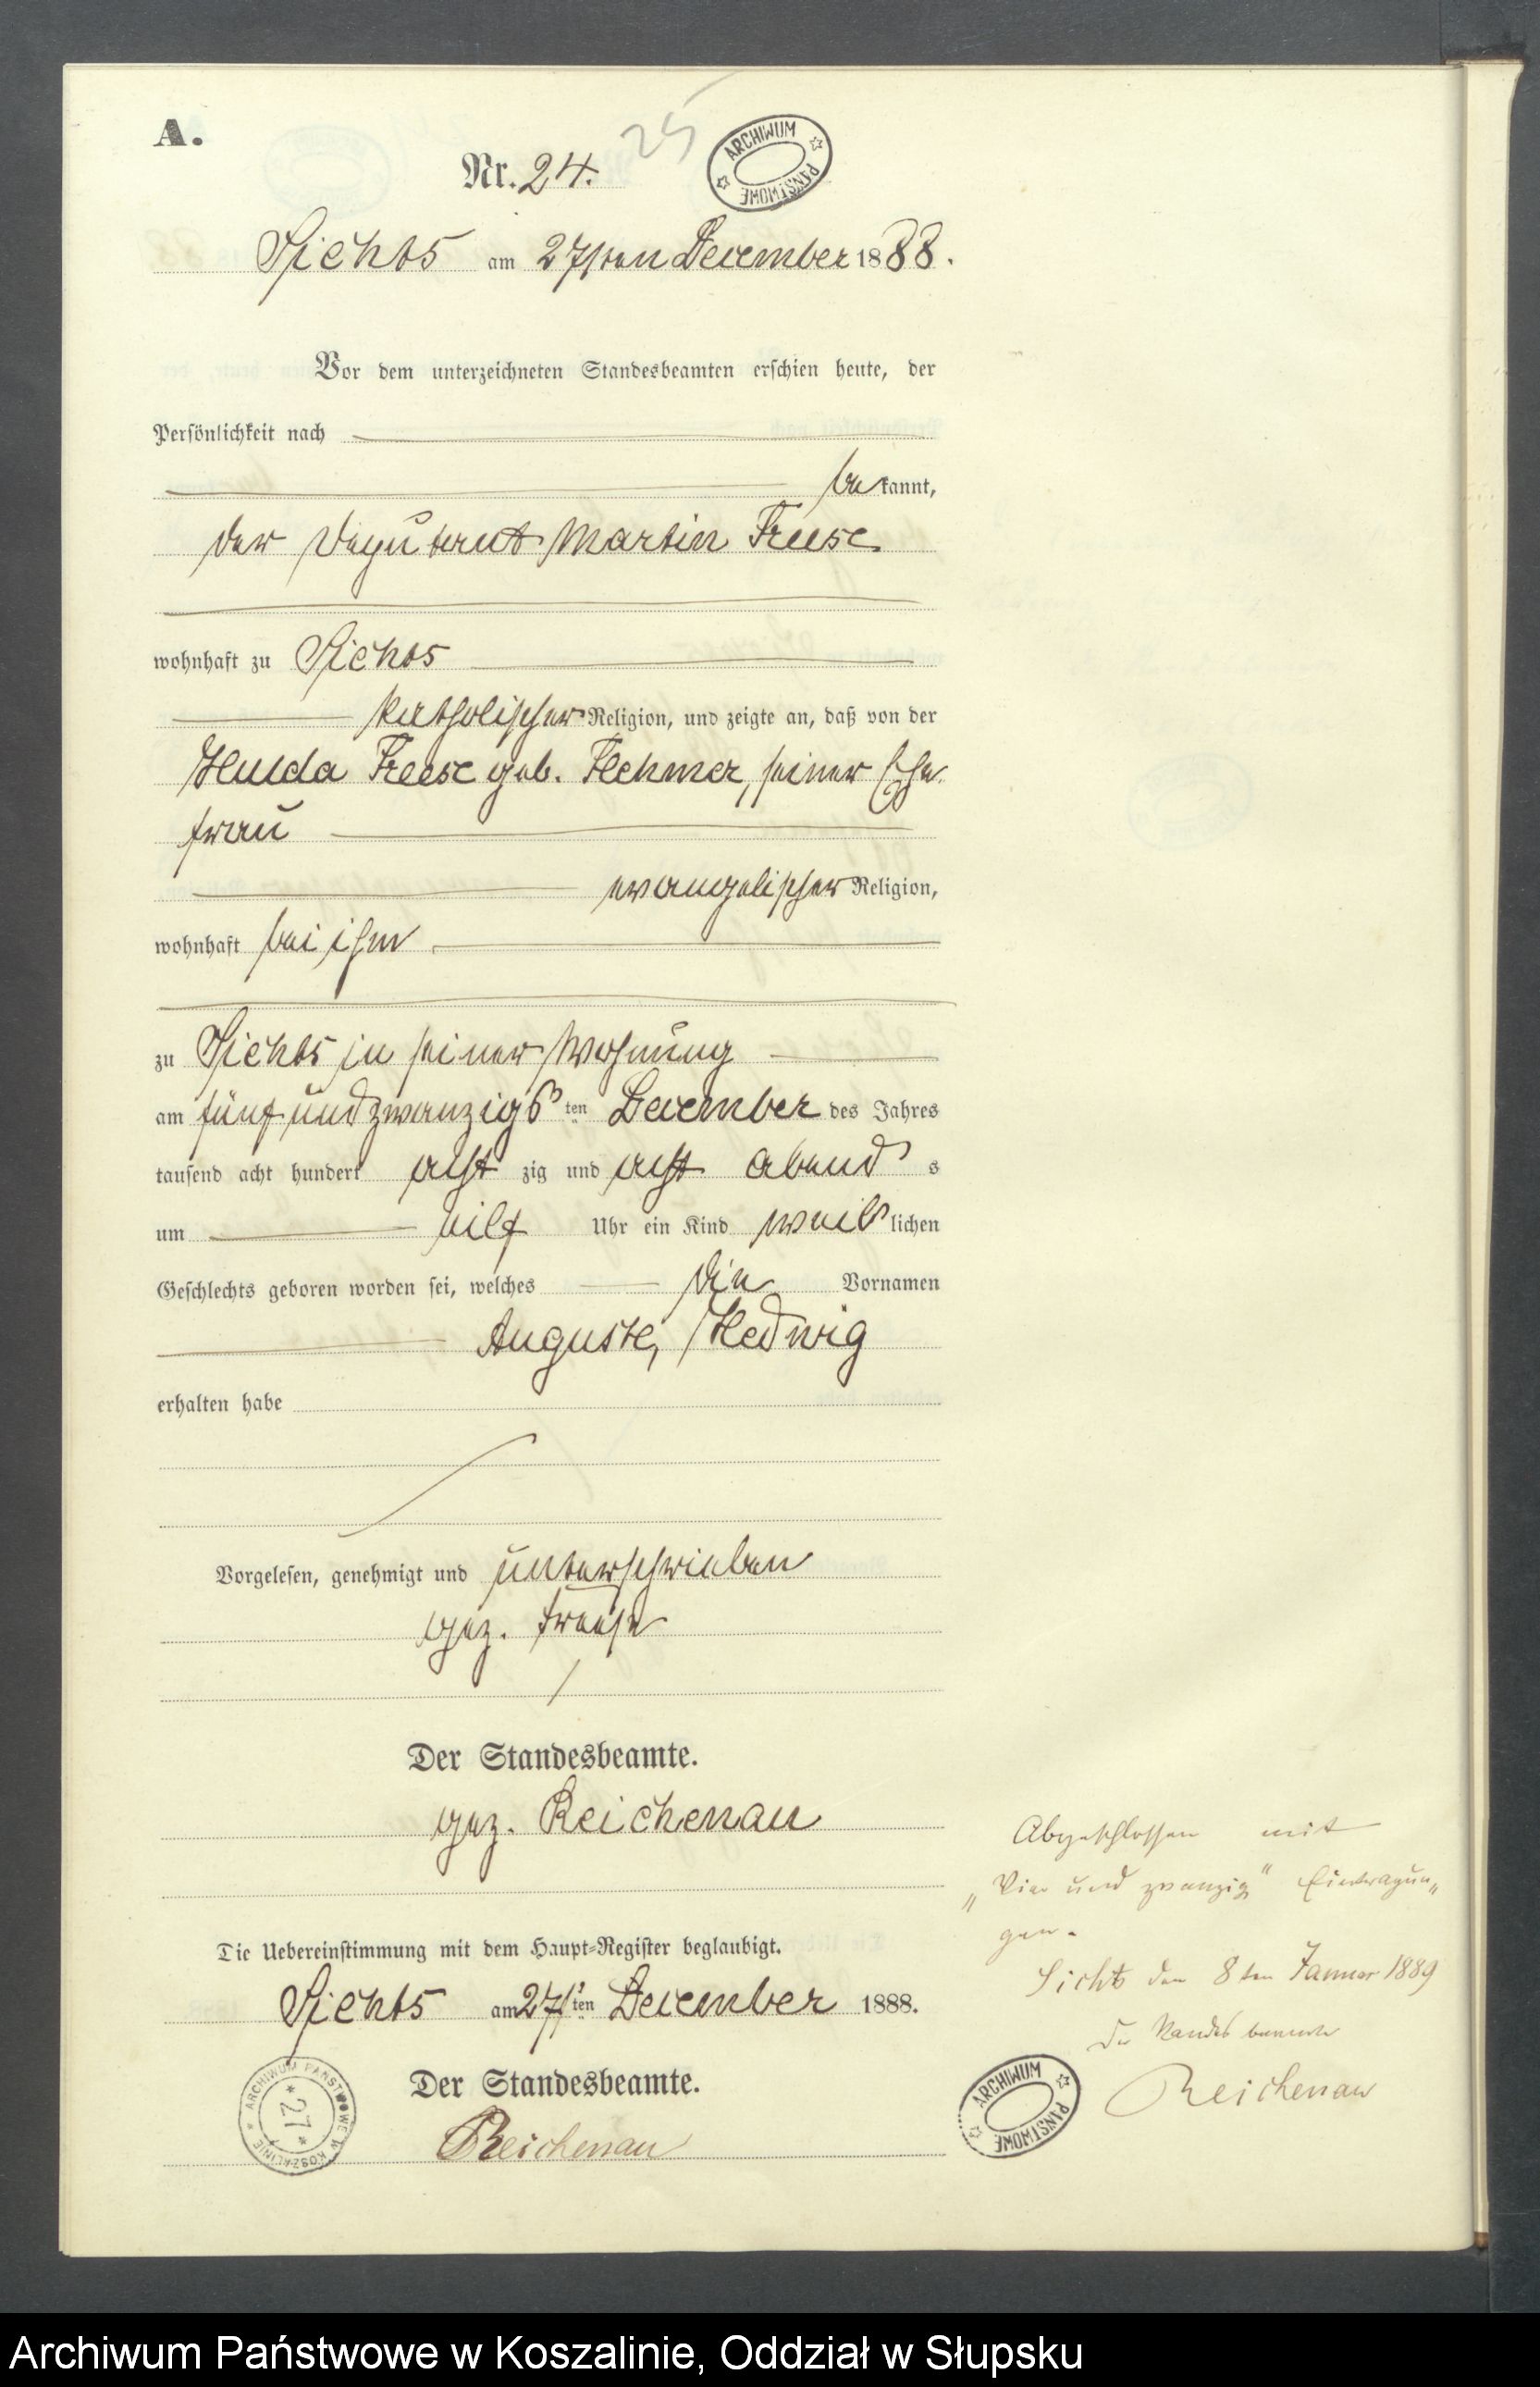 A.
Nr. 24.
25
ARCHIWUM PAŃSTWOWE
Sichts am 27sten December 1888.
Vor dem unterzeichneten Standesbeamten erschien heute, der
Persönlichkeit nach
bekannt,
der Deputant Martin Freese
wohnhaft zu Sichts
katholischer Religion, und zeigte an, daß von der
Hulda Freese geb. Flehmer, seiner Ehe-
frau
evangelischer Religion,
wohnhaft bei ihm
zu Sichts in seiner Wohnung
am fünfundzwanzigsten December des Jahres
tausend acht hundert achtzig und acht Abends
um eilf Uhr ein Kind weiblichen
Geschlechts geboren worden sei, welches die Vornamen
Auguste, Hedwig
erhalten habe
Vorgelesen, genehmigt und unterschrieben
gez. Freese
Der Standesbeamte.
gez. Reichenau
Abgeschlossen mit
„Vier und zwanzig" Eintragun„
gen.
Die Uebereinstimmung mit dem Haupt-Register beglaubigt.
Sichts den 8ten Januar 1889
Sichts am 27sten December 1888.
Der Standesbeamte
Der Standesbeamte.
Reichenau
Reichenau
ARCHIWUM PAŃSTWOWE W KOSZALINIE
27
ARCHIWUM PAŃSTWOWE
Archiwum Państwowe w Koszalinie, Oddział w Słupsku